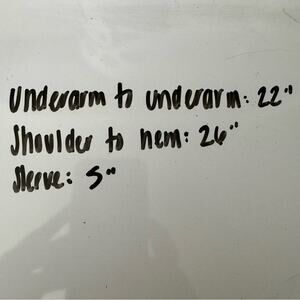 Underarm to underarm: 22"
Shoulder to hem: 26"
Sleeve: 5"